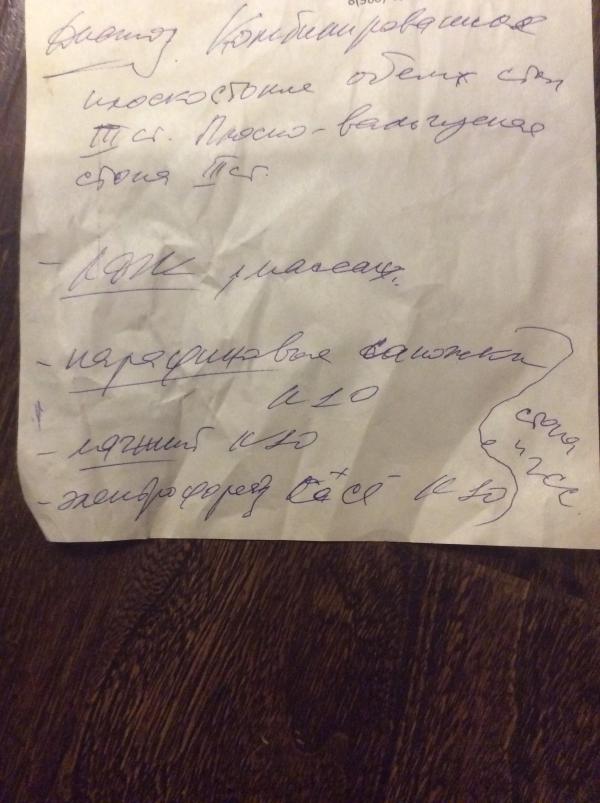 Диагноз. Комбинированное
плоскостопие обеих стоп
III ст. Плоско-вальгусная
стопа II ст.
- ЛФК, массаж.
- парафиновые сапожки
N 10
- N 10
- электрофорез Ca Cl N 10
стопа
и